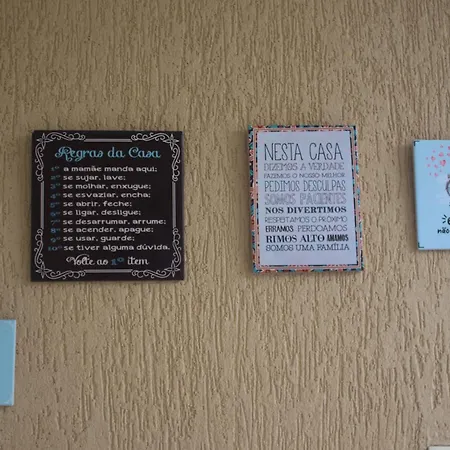 Regras da Casa
1º a mamãe manda aqui;
2º se sujar, lave;
3º se molhar, enxugue;
4º se esvaziar, encha;
5º se abrir, feche;
6º se ligar, desligue;
7º se desarrumar, arrume;
8º se acender, apague;
9º se usar, guarde;
10º se tiver alguma dúvida,
Volte ao 1º item
NESTA CASA
DIZEMOS A VERDADE
FAZEMOS O NOSSO MELHOR
PEDIMOS DESCULPAS
SOMOS PACIENTES
NOS DIVERTIMOS
RESPEITAMOS O PRÓXIMO
ERRAMOS PERDOAMOS
RIMOS ALTO AMAMOS
SOMOS UMA FAMÍLIA